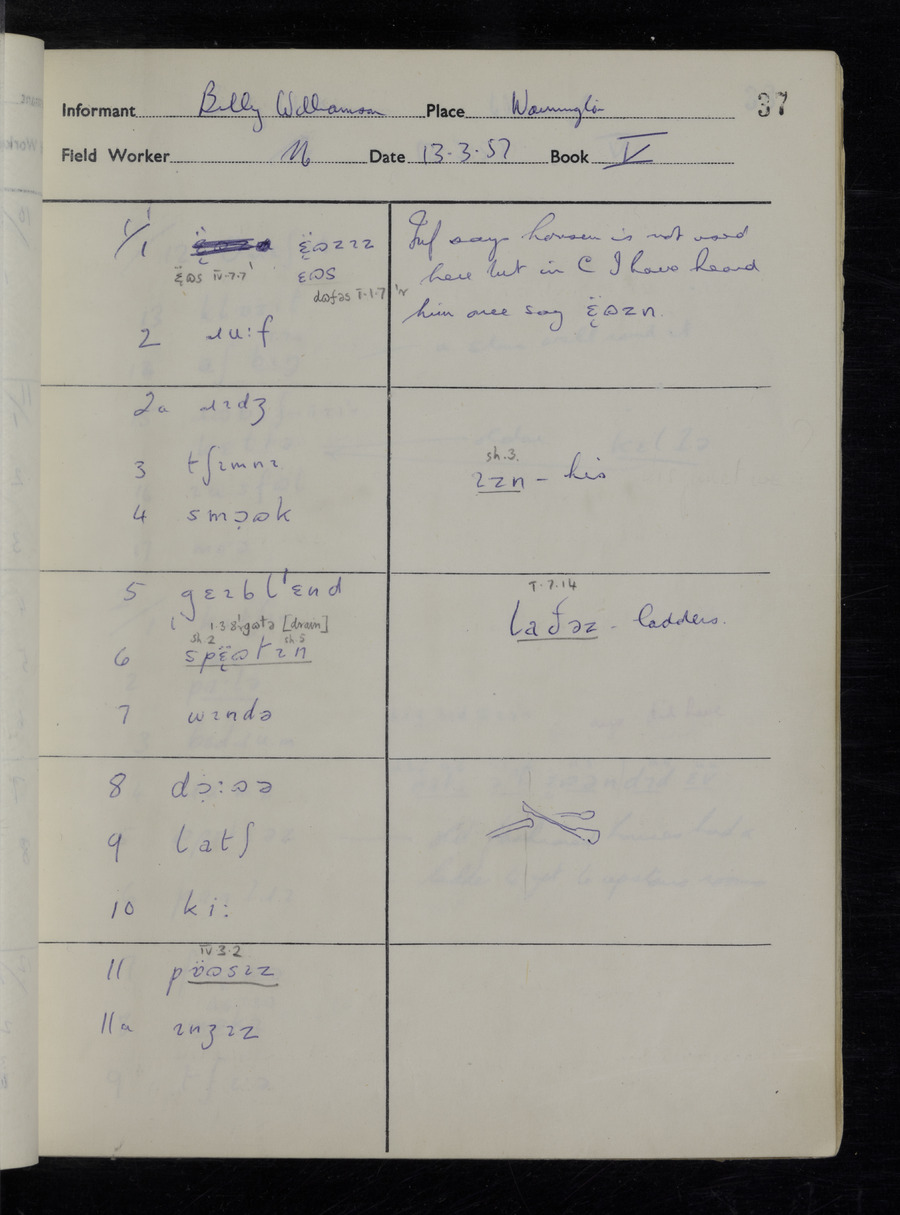 Informant Billy Williamson Place Warmington 37
Field Worker N Date 13·3·57 Book V
1/1 ɛ̈ʊzɪz
ɛ̈ʊs IV·7·7 ɛʊs
V·1·7
2 ɹu:f
Inf says housen is not used
here but in C I have heard
him once say ɛ̈ʊzn.
2a ɹɪdʒ
3 tʃɪmnɪ
4 smɔ̣ʊk
sh.3.
ɪzn – his
5 gɛɪbl'ɛnd
1·3·8 gʊtə [drain]
sh 2 sh 5
6 spɛ̈ʊtɪn
7 wɪndə
V·7·14
laðəz – ladders.
8 dɔ̣:ʊə
9 latʃ
10 ki:
IV 3·2
11 pöʊsɪz
11a ɪnʒɪz